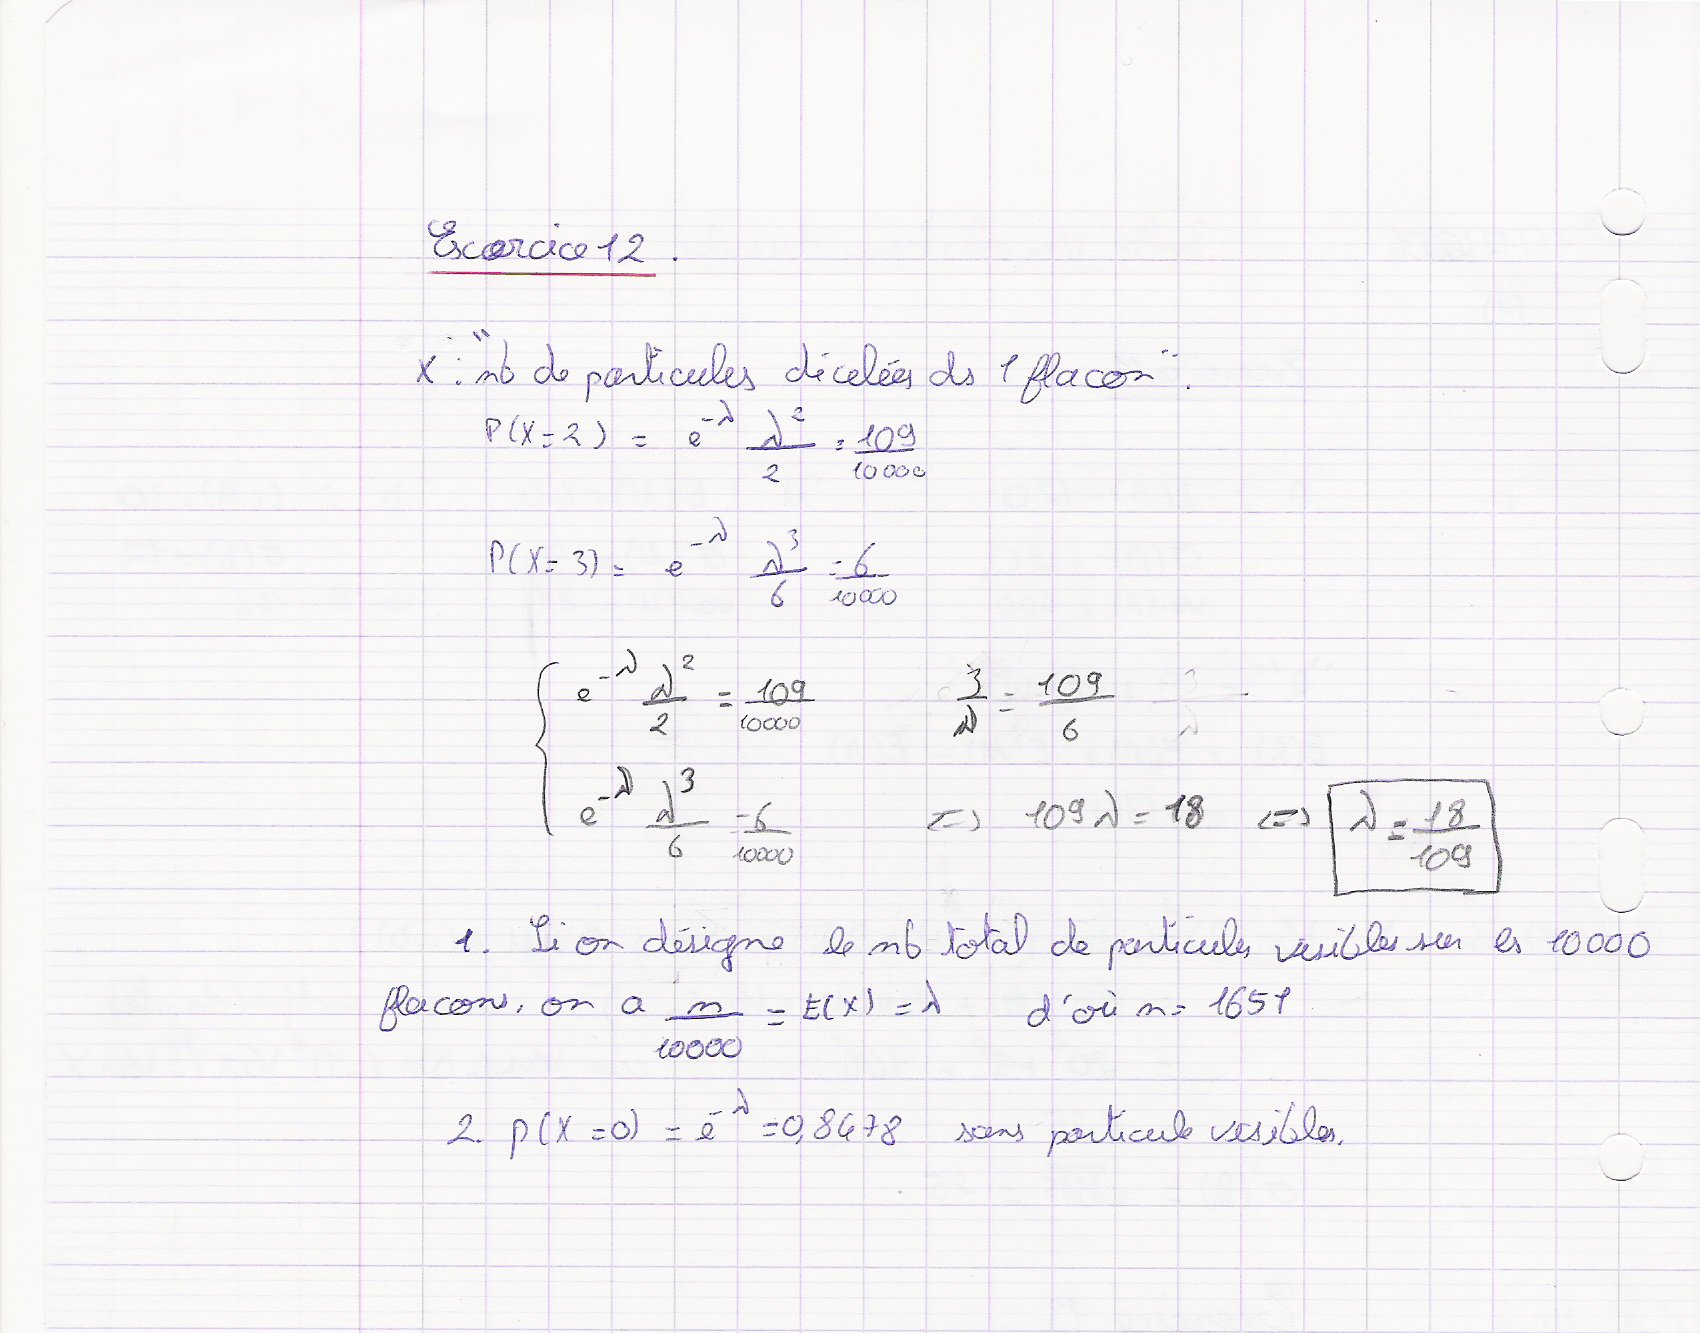 Exercice 12.
X : "nb de particules décelées ds 1 flacon".
P(X=2) = e^-λ λ²/2 = 109/10000
P(X=3) = e^-λ λ³/6 = 6/10000
{ e^-λ λ²/2 = 109/10000    3/λ = 109/6
e^-λ λ³/6 = 6/10000    <=> 109λ = 18 <=> λ = 18/109
1. Si on désigne le nb total de particules visibles sur les 10000
flacons, on a n/10000 = E(X) = λ    d'où n = 1651
2. p(X=0) = e^-λ = 0,8478 sans particule visibles.